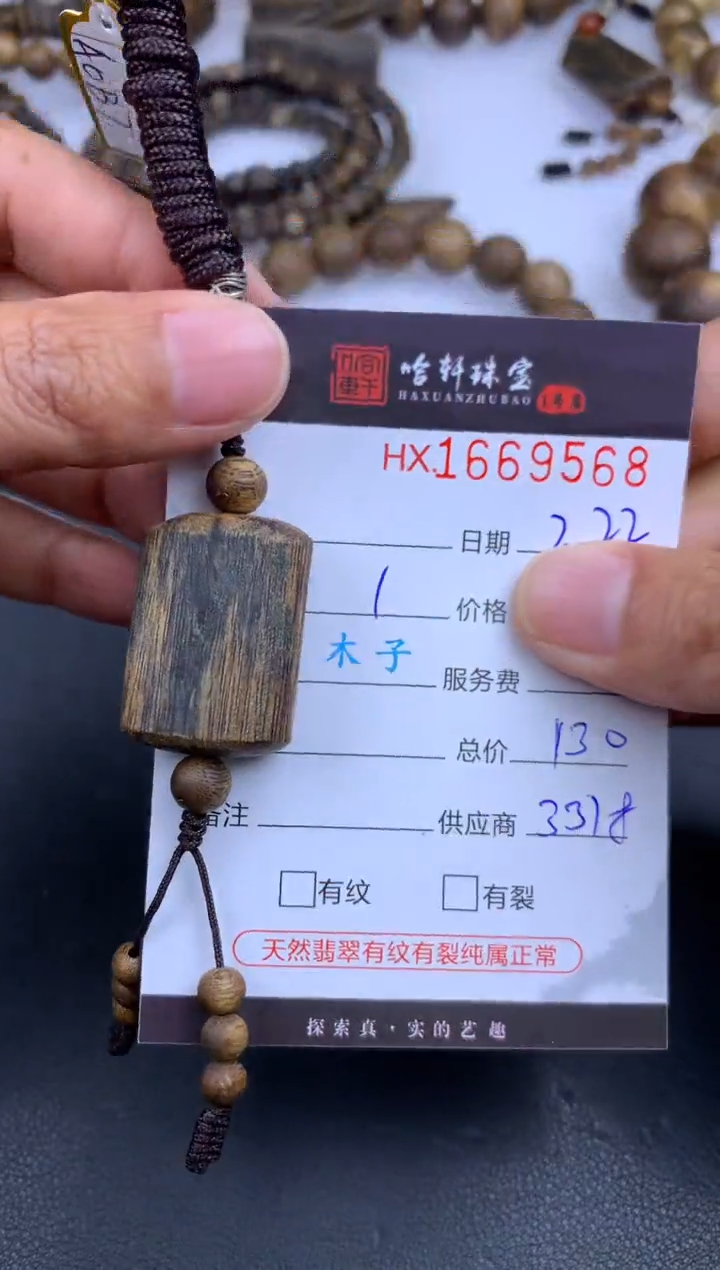 哈轩珠宝
HAXUANZHUBAO
HX.1669568
日期 2.22
1 价格
木子
服务费
总价 130
备注 供应商 3318
有纹 有裂
天然翡翠有纹有裂纯属正常
探索真·实的艺趣